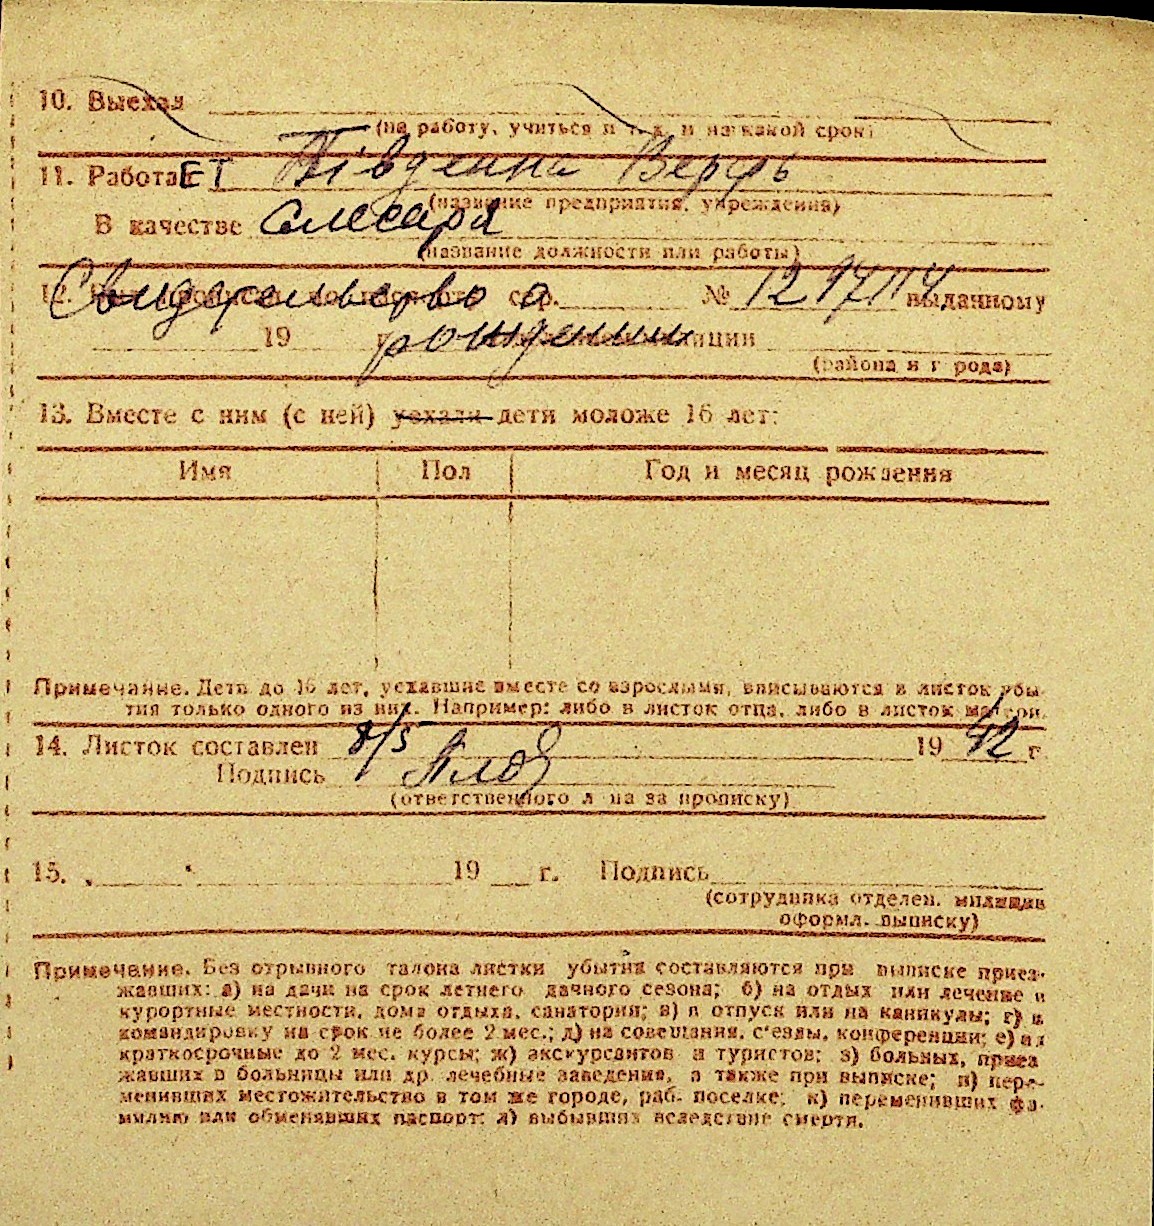 10. Выехал
(на работу, учиться и т. д. и на какой срок)
11. РаботаЕТ Південна Верфь
(название предприятия, учреждения)
В качестве слесаря
(название должности или работы)
12. Свидетельство о сер. № выданному
19 рождении
(района и г рода)
13. Вместе с ним (с ней) уехали дети моложе 16 лет:
Имя Пол Год и месяц рождения
Примечание. Дети до 16 лет, уехавшие вместе со взрослыми, вписываются в листок убы-
тия только одного из них. Например: либо в листок отца, либо в листок матери.
14. Листок составлен 8/5 19 42 г
Подпись
(ответственного л ца за прописку)
15. 19 г. Подпись
(сотрудника отделен. милиции
оформл. выписку)
Примечание. Без отрывного талона листки убытия составляются при выписке приез-
жавших: а) на дачи на срок летнего дачного сезона; б) на отдых или лечение в
курортные местности, дома отдыха, санатории; в) в отпуск или на каникулы; г) в
командировку на срок не более 2 мес.; д) на совещания, с'езды, конференции; е) на
краткосрочные до 2 мес. курсы; ж) экскурсантов и туристов; з) больных, приез
жавших в больницы или др. лечебные заведения, а также при выписке; и) пере-
менивших местожительство в том же городе, раб. поселке; к) переменивших фа-
милию или обменявших паспорт; л) выбывших вследствие смерти.